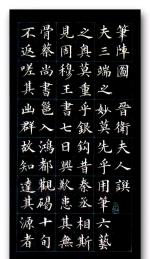 筆陣圖 晉衛夫人譔
夫三端之妙莫先乎用筆六藝
之奧莫重乎銀鉤昔秦丞相斯
見周穆王書七日興歎患其無
骨蔡尚書邕入鴻都觀碣十旬
不返嗟其出群故知達其源者